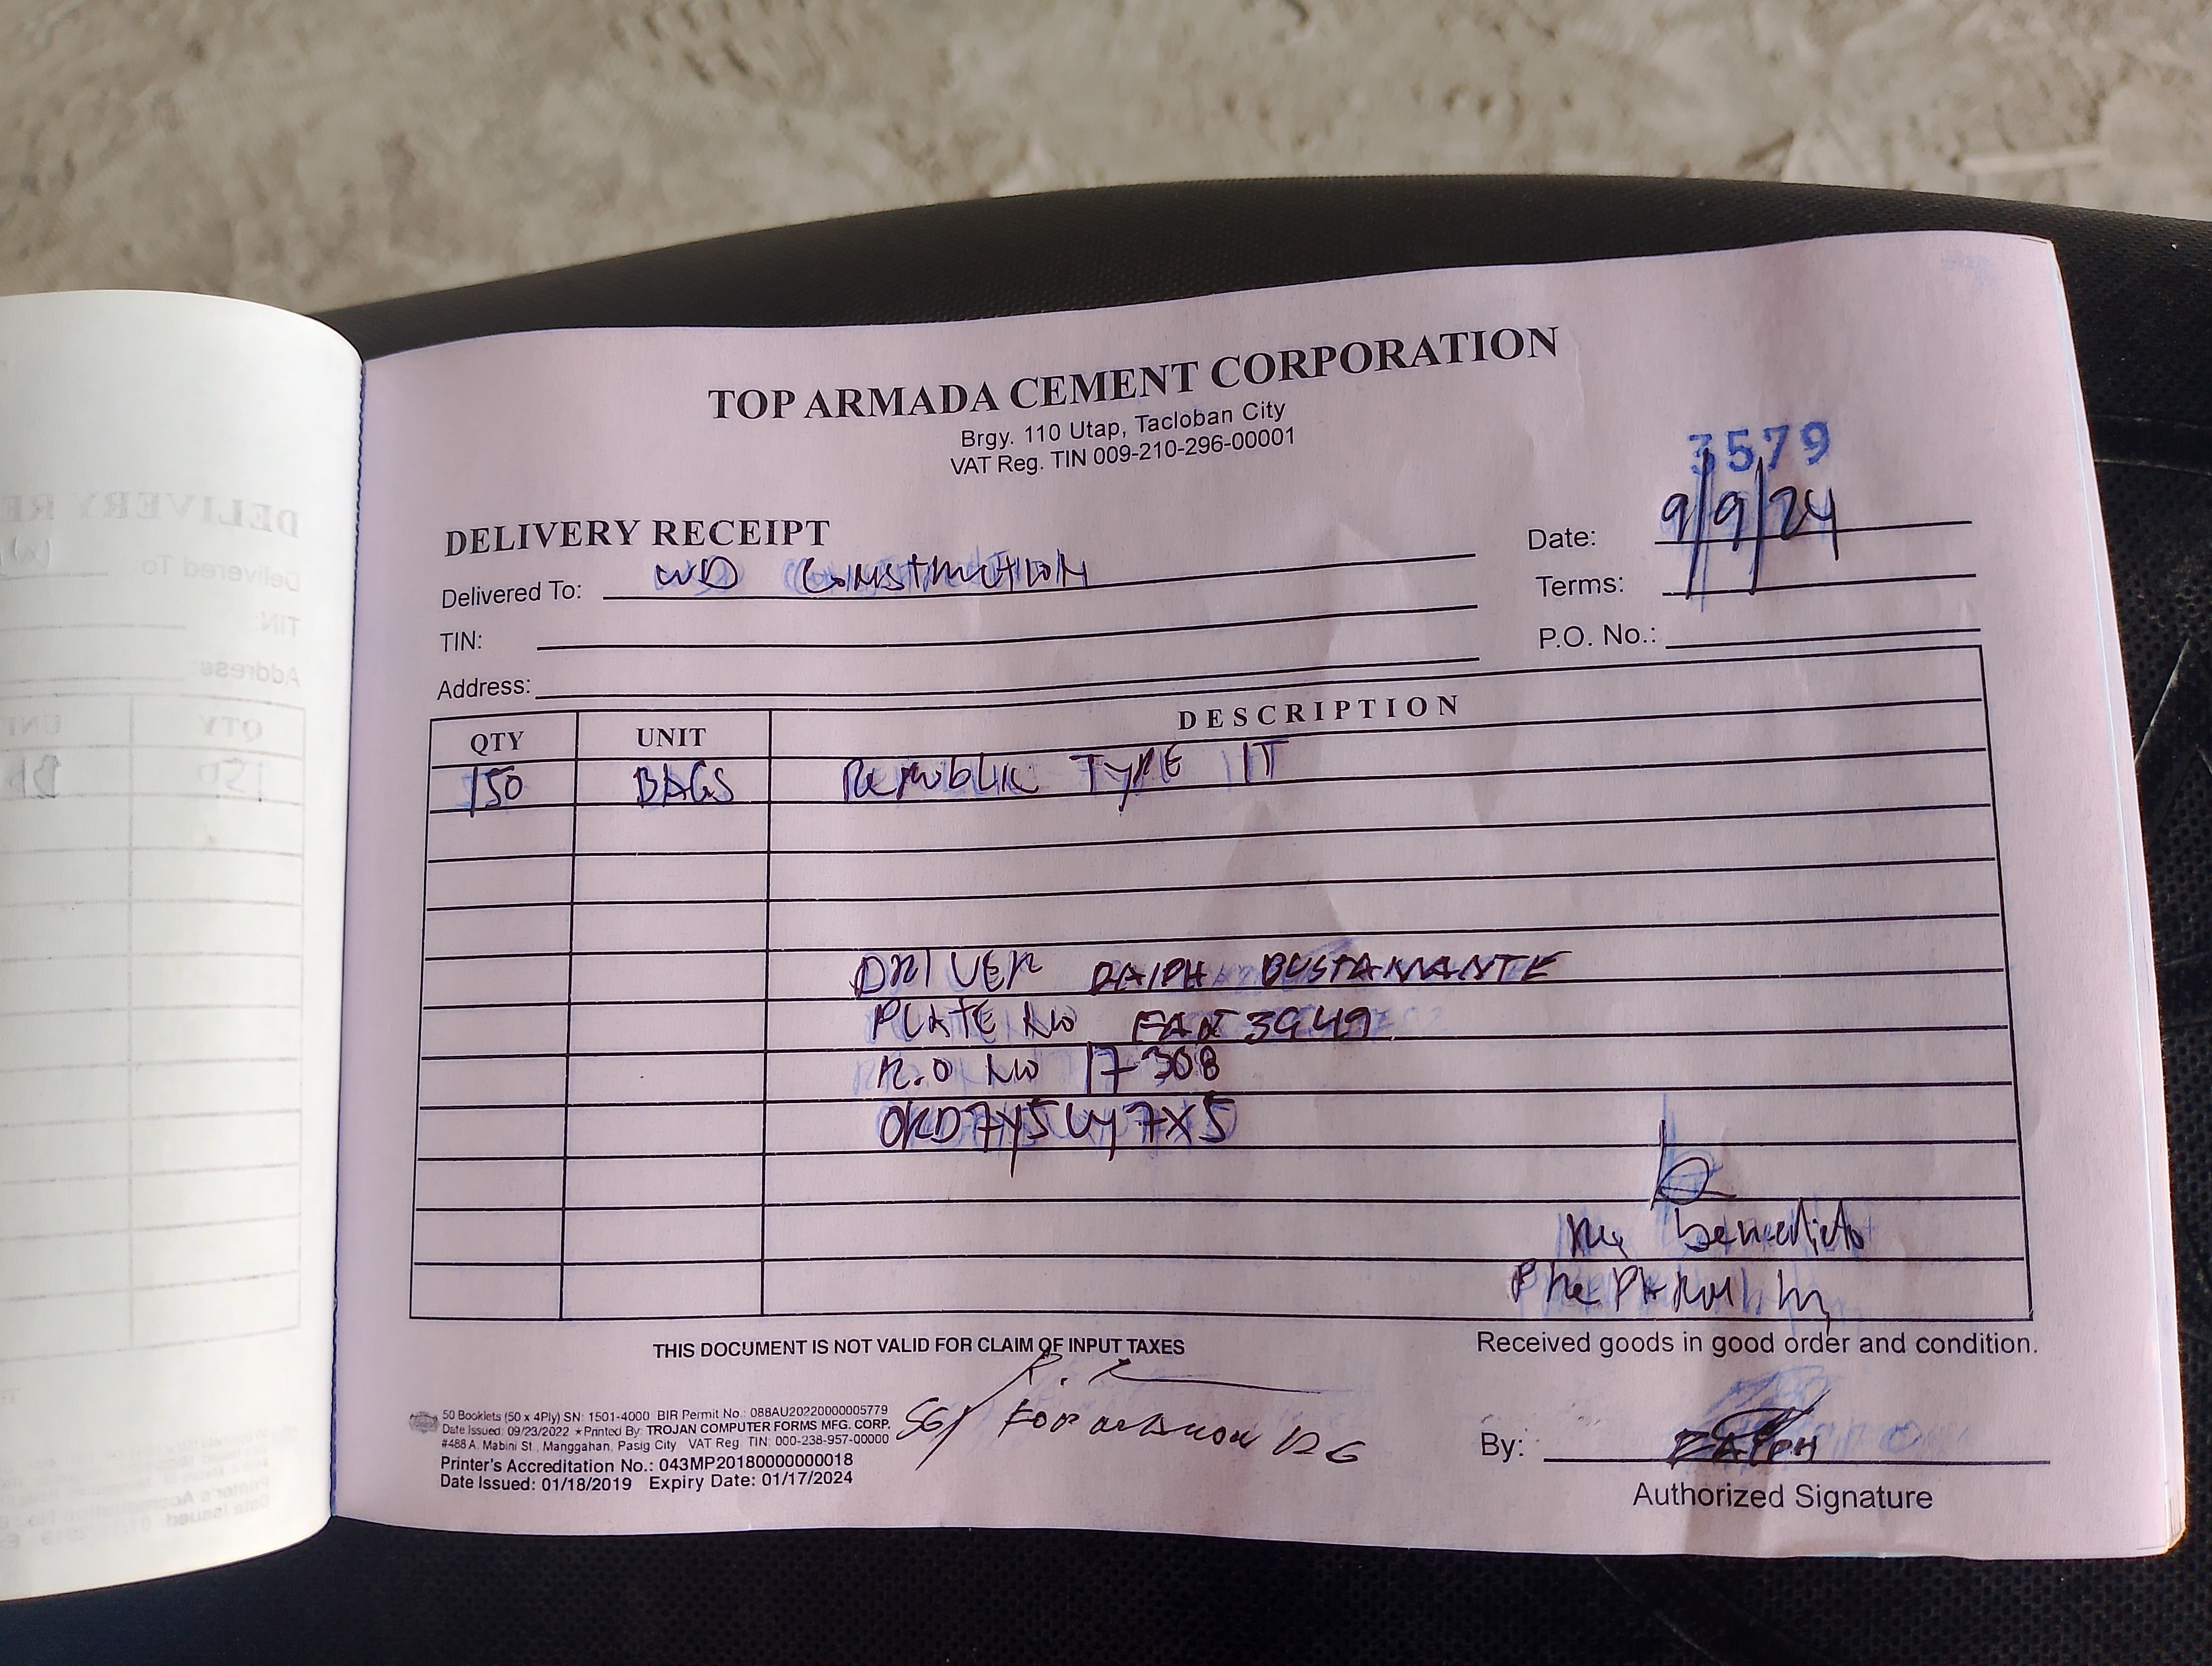 TOP ARMADA CEMENT CORPORATION
Brgy. 110 Utap, Tacloban City
VAT Reg. TIN 009-210-296-00001
3579
DELIVERY RECEIPT
Date: 9/9/24
Delivered To: WD CONSTRUCTION
Terms:
TIN:
P.O. No.:
Address:
QTY UNIT DESCRIPTION
150 BAGS REPUBLIC TYPE 1T
DRIVER RALPH BUSTAMANTE
PLATE NO 3949
R.O NO 17308
OKD7Y5UY7X5
benedicto
THIS DOCUMENT IS NOT VALID FOR CLAIM OF INPUT TAXES
Received goods in good order and condition.
50 Booklets (50 x 4Ply) SN: 1501-4000 BIR Permit No.: 088AU20220000005779
Date Issued: 09/23/2022 ★Printed By: TROJAN COMPUTER FORMS MFG. CORP.
#488 A. Mabini St., Manggahan, Pasig City VAT Reg TIN: 000-238-957-00000
Printer's Accreditation No.: 043MP20180000000018
Date Issued: 01/18/2019 Expiry Date: 01/17/2024
By: RALPH
Authorized Signature